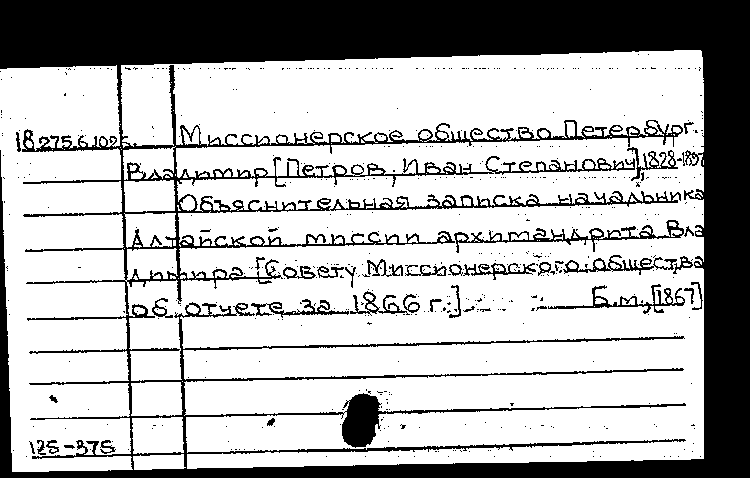 18.275.6.102б. Миссионерское общество Петербург.
Владимир [Петров, Иван Степанович], 1828-1897
Объяснительная записка начальника
Алтайской миссии архимандрита Вла
димира [Совету Миссионерского общества
об отчете за 1866 г.] Б.м., [1867]
125-375